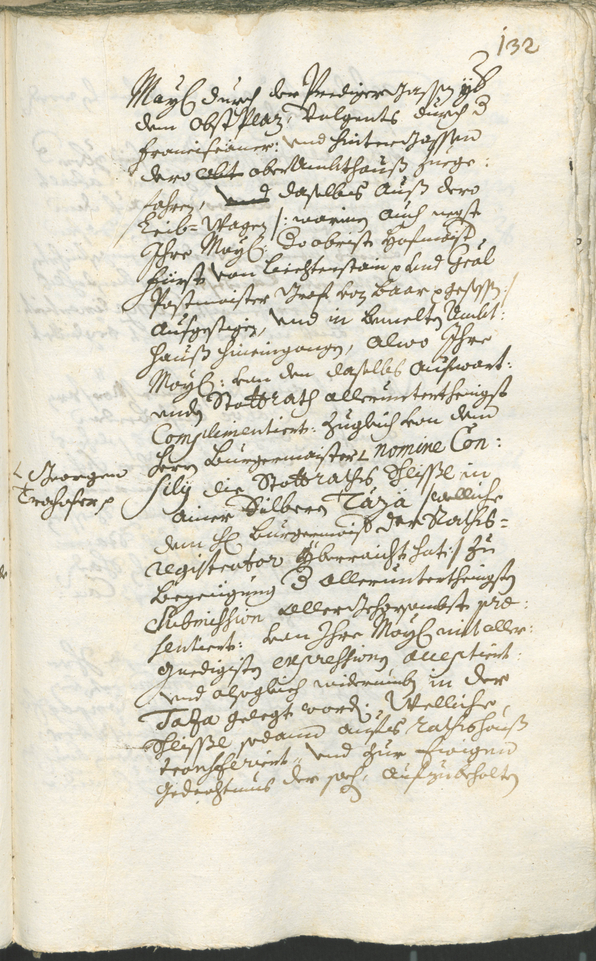 132
Mayt: durch der Prediger Gassen yb
dem Obst Plaz, Volgents durch d
Franciscaner: und hintere Gassen
dero oberAmbthauß zuege:
fahren, und daselbs auß dero
Leib=Wagen /: warinen auch negst
Ihre Mayt: Do obriste Hofmaist
Fürst von Liechtenstain p und Gral
Postmaister Graf von Baar p gesessen :/
Aufgestigen, und in bemelten Ambt:
hauß hineingangen, alwo Ihre
Mayt: von den daselbs aufwart:
enden Stattrath allerunterthenigst
Complimentiert: zugleich von dem
Herrn Burgermaister nomine Con:
Georgen
Trohofer p
silij die Stattraths Schlissl in
ainer Silbern Taza /: welliche
dem H Burgermaist der Raths=
registrator yberraicht hat :/ zu
bezeugung d allerunterthenigsten
Submission allergehorsambst prae:
sentiert: von Ihro Mayt mit aller:
gnedigisten expressionen acceptiert:
und alsogleich widerumb in der
Taza gelegt worden; Welliche
Schlissl sodann aufs Rathshauß
transferiert, und zur Ewigen
Gedechtnus der sach, aufzubehalten